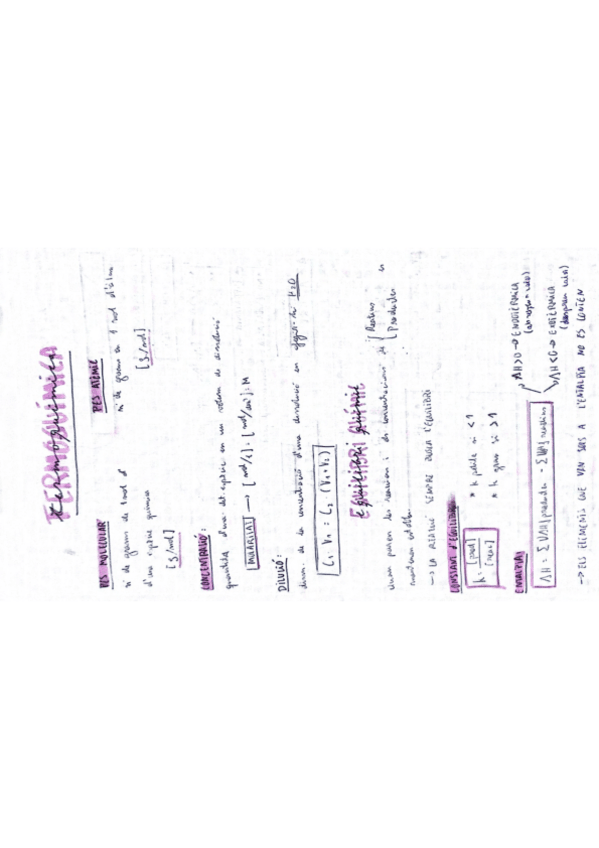 TERMOQUÍMICA
termoquímica
PES MOLECULAR
nº de grams de 1 mol d
d'una espècie química
[g/mol]
PES ATÒMIC
nº de grams en 1 mol d'àtoms
[g/mol]
CONCENTRACIÓ:
quantitat d'una det. espècie en un volum de dissolució
MOLARITAT → [mol/L] : [mol/dm³] : M
DILUCIÓ:
dismin. de la concentració d'una dissolució en afegir-hi H2O
C1 · V1 = C2 · (V1 + V2)
EQUILIBRI QUÍMIC
equilibri químic
quan passen les reaccions i les concentracions de { Reactius
Productes
es mantenen estables
→ LA REACCIÓ SEMPRE BUSCA L'EQUILIBRI
CONSTANT D'EQUILIBRI
k = [prod] / [reac]
* k petita si < 1
* k gran si > 1
ENTALPIA
ΔH = Σ productes - Σ reactius
ΔH>0 → ENDOTÈRMICA
ΔH<0 → EXOTÈRMICA
→ ELS ELEMENTS QUE VAN SOLS A L'ENTALPIA NO ES CONTEN